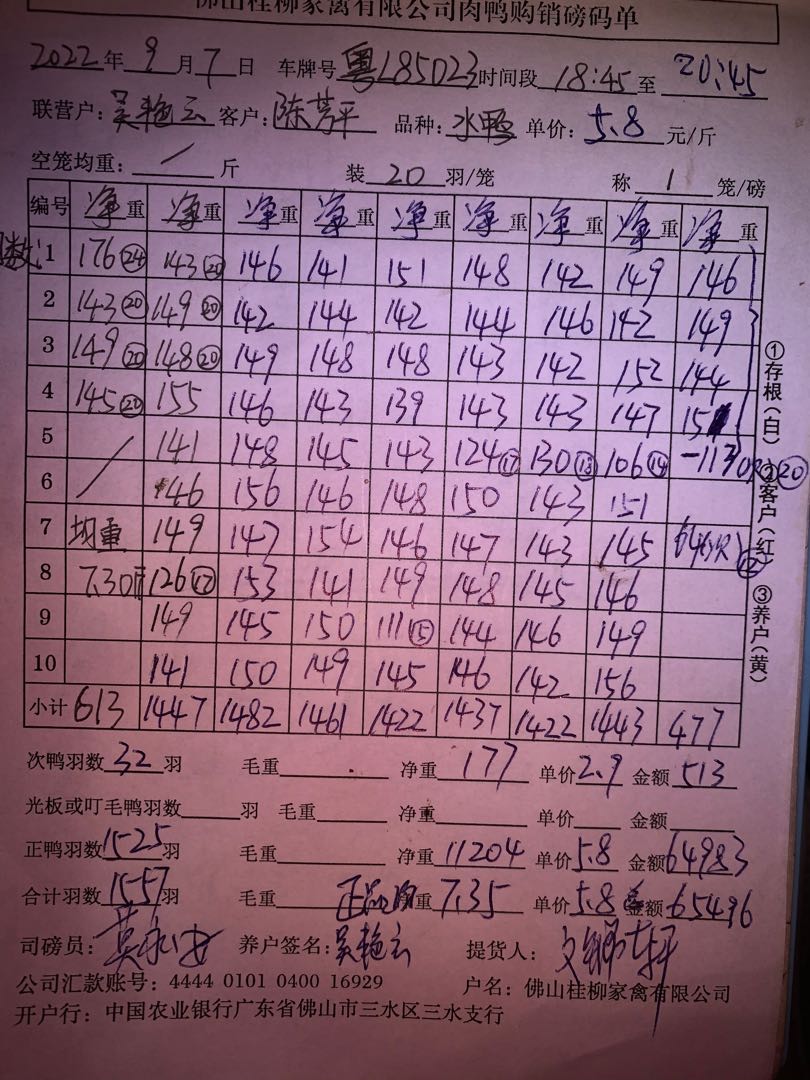 佛山桂柳家禽有限公司肉鸭购销磅码单
2022年9月7日 车牌号粤L85D23时间段18:45至20:45
联营户:吴艳云 客户:陈芳平 品种:水鸭 单价:5.8元/斤
空笼均重:/斤 装20羽/笼 称1笼/磅
编号 净重 净重 净重 净重 净重 净重 净重 净重 净重
1 176㉔ 143⑳ 146 141 151 148 142 149 146
2 143⑳ 149⑳ 142 144 142 144 146 142 149
3 149⑳ 148⑳ 149 148 148 143 142 152 144
4 145⑳ 155 146 143 139 143 143 147
5 / 141 148 145 143 124⑰ 130⑱ 106⑭ -113 ⑳
6 146 156 146 148 150 143 151
7 均重 149 147 154 146 147 143 145
8 7.30 126⑰ 153 141 149 148 145 146
9 149 145 150 111⑮ 144 146 149
10 141 150 149 145 146 142 156
小计 613 1447 1482 1461 1422 1437 1422 1443 477
①存根(白)②客户(红)③养户(黄)
次鸭羽数32羽 毛重 净重177 单价2.9 金额513
光板或叮毛鸭羽数 羽 毛重 净重 单价 金额
正鸭羽数1525羽 毛重 净重11204 单价5.8 金额64983
合计羽数1557羽 毛重 正品均重7.35 单价5.8 金额65496
司磅员: 养户签名:吴艳云 提货人:
公司汇款账号:4444 0101 0400 16929 户名:佛山桂柳家禽有限公司
开户行:中国农业银行广东省佛山市三水区三水支行